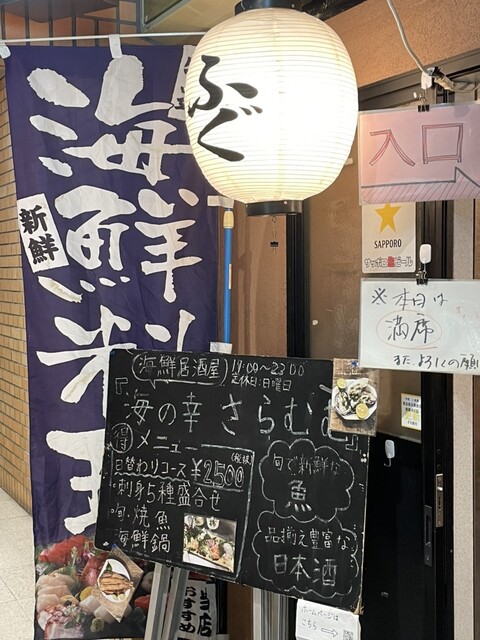 海鮮料理
新鮮
ふぐ
入口
SAPPORO
サッポロ生ビール
※本日は
満席
また、よろしくお願
海鮮居酒屋
17:00～23:00
定休日:日曜日
『海の幸 さらむむ』
得メニュー
日替わりコース ¥2500
(税抜)
・刺身5種盛合せ
・旬の焼魚
・海鮮鍋
旬で新鮮な
魚
品揃え豊富な
日本酒
ホームページは
こちら
当店
おすすめ